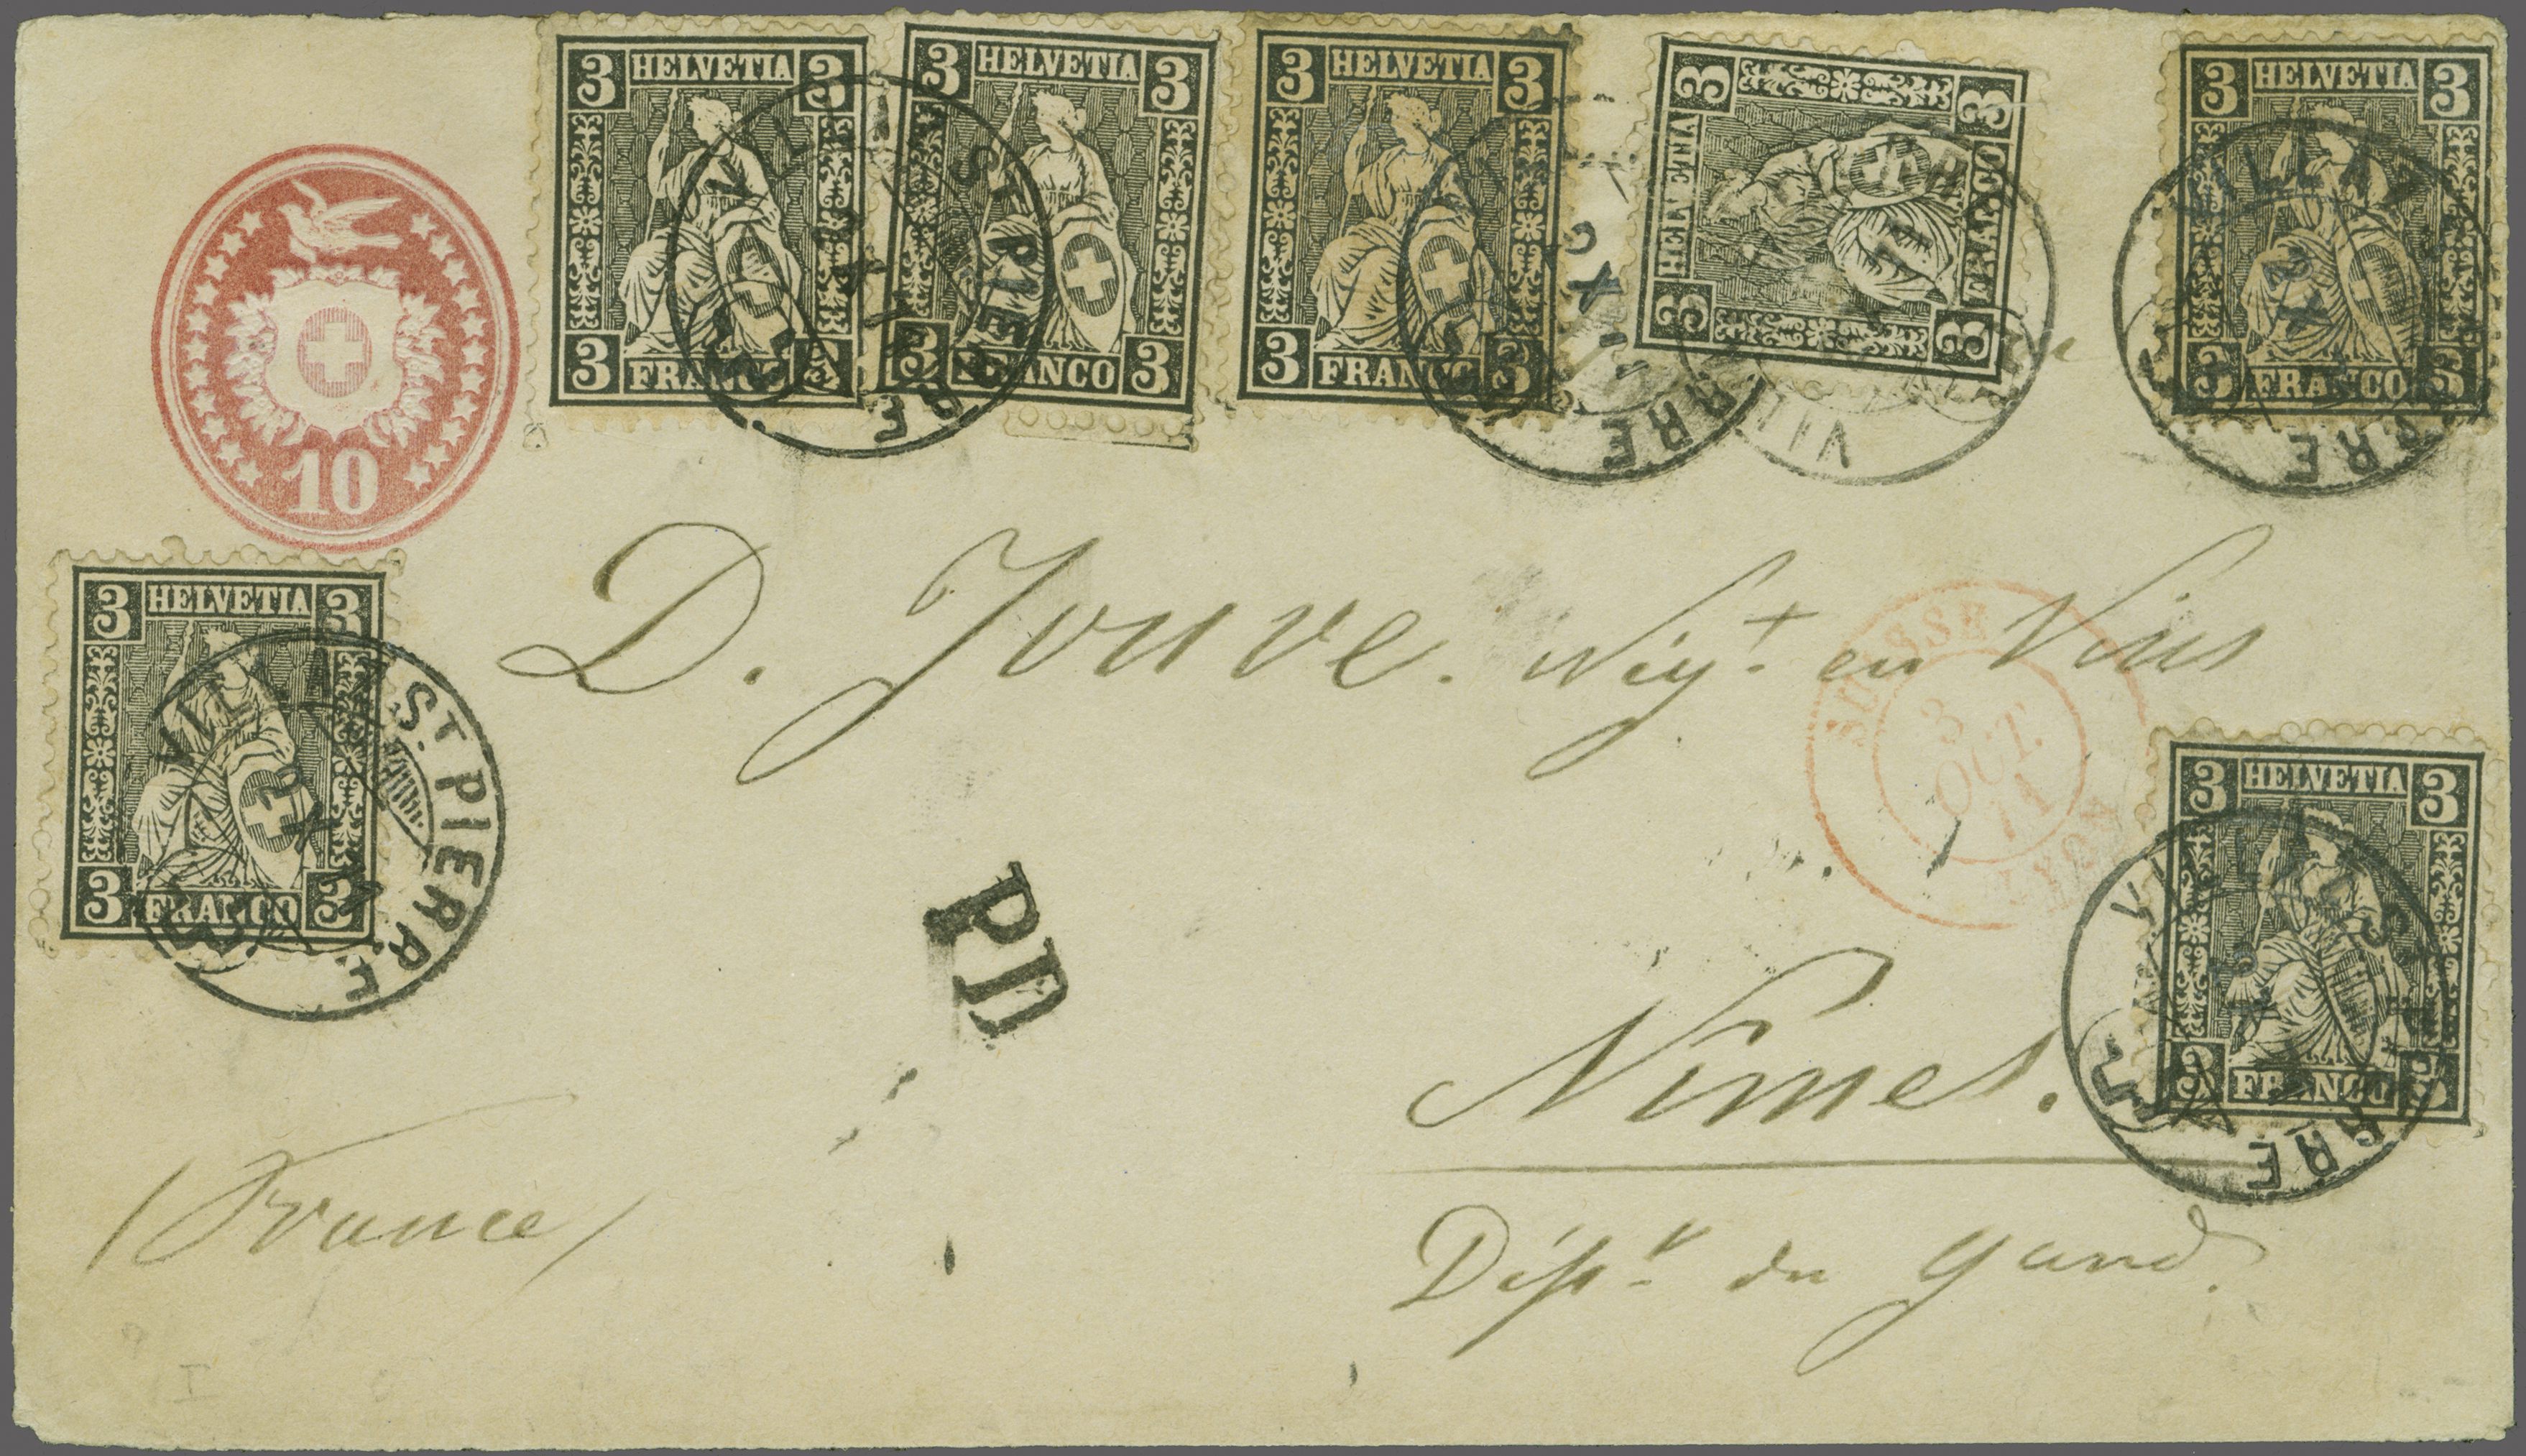 3 HELVETIA 3
3 FRANCO 3
3 HELVETIA 3
3 FRANCO 3
3 HELVETIA 3
3 FRANCO 3
3 HELVETIA 3
3 FRANCO 3
3 HELVETIA 3
3 FRANCO 3
VILLAZ ST PIERRE
10
D. Jouve. Nég.t en Vins
SUISSE
3
OCT.
71
LYON
3 HELVETIA 3
3 FRANCO 3
VILLAZ ST PIERRE
3 HELVETIA 3
3 FRANCO 3
VILLAZ ST PIERRE
PD
Nimes.
(France)
Dépt du Gard.